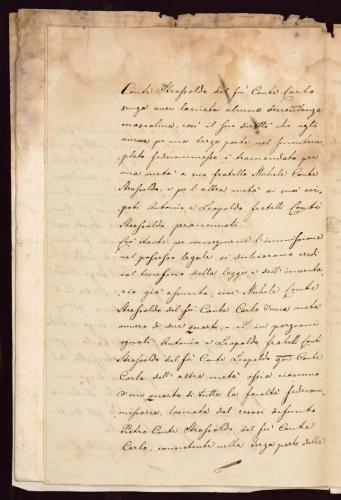 Conte Strassoldo del fu Conte Carlo
senza aver lasciata alcuna discendenza
mascolina, così il suo diritto che egli
aveva per una terza parte nel
plato fedecommesso è tramandato per
una metà a suo fratello Michele Conte
Strassoldo, e per l'altra metà ai suoi
poti Antonio e Leopoldo fratelli Conti
Strassoldo prenominati.
Ciò stante per conseguire l'immissione
nel possesso legale si dichiarono eredi
col beneficio della legge e dell'inventa
rio già assunto, cioè Michele Conte
Strassoldo del fu Conte Carlo d'una metà
ossero di due quarti, ed in porzioni
eguali Antonio e Leopoldo fratelli Conti
Strassoldo del fu Conte Leopoldo Conte
Carlo dell'altra metà ossia ciascuno
d'un quarto di tutta la facoltà fedecom
missaria, lasciata dal defunto
Pietro Conte Strassoldo del fu Conte
Carlo, consistente nella terza parte delle